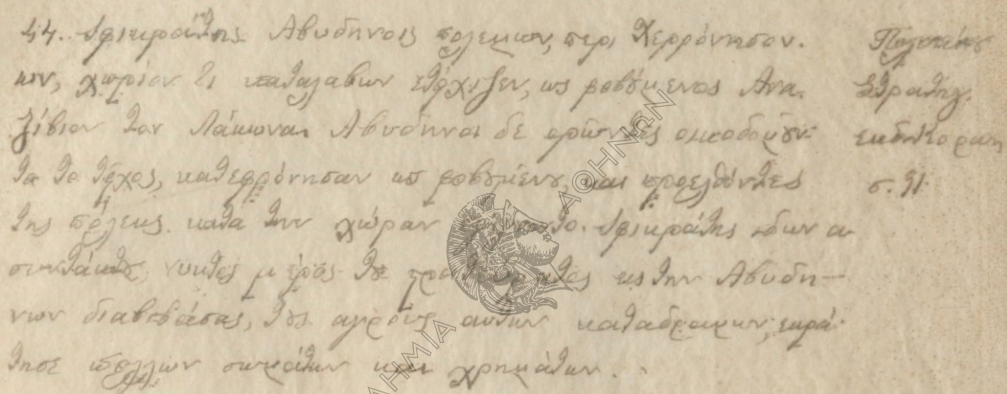 44. Ιφικράτης Αβυδηνοις πολεμων, περι Χερρόνησον.
ων, χωρίον τι καταλαβων ετείχιζεν, ως φοβούμενος Ανα-
ξίβιον τον Λάκωνα. Αβυδηνοι δε ορώντες οικοδομούν-
τα το τείχος, κατεφρόνησαν ως φοβουμένου, και προελθόντες
της πόλεως κατα την χώραν Ιφικράτης ιδων α-
συντάκτους νυκτος μέρος τι εις την Αβυδη-
νων διαβιβάσας, τους αγρούς αυτων καταδραμων, εκρά-
τησε πολλων σωμάτων και χρημάτων.
Πολυαίνου
Στρατηγ.
σ. 91
ΑΘΗΝΩΝ